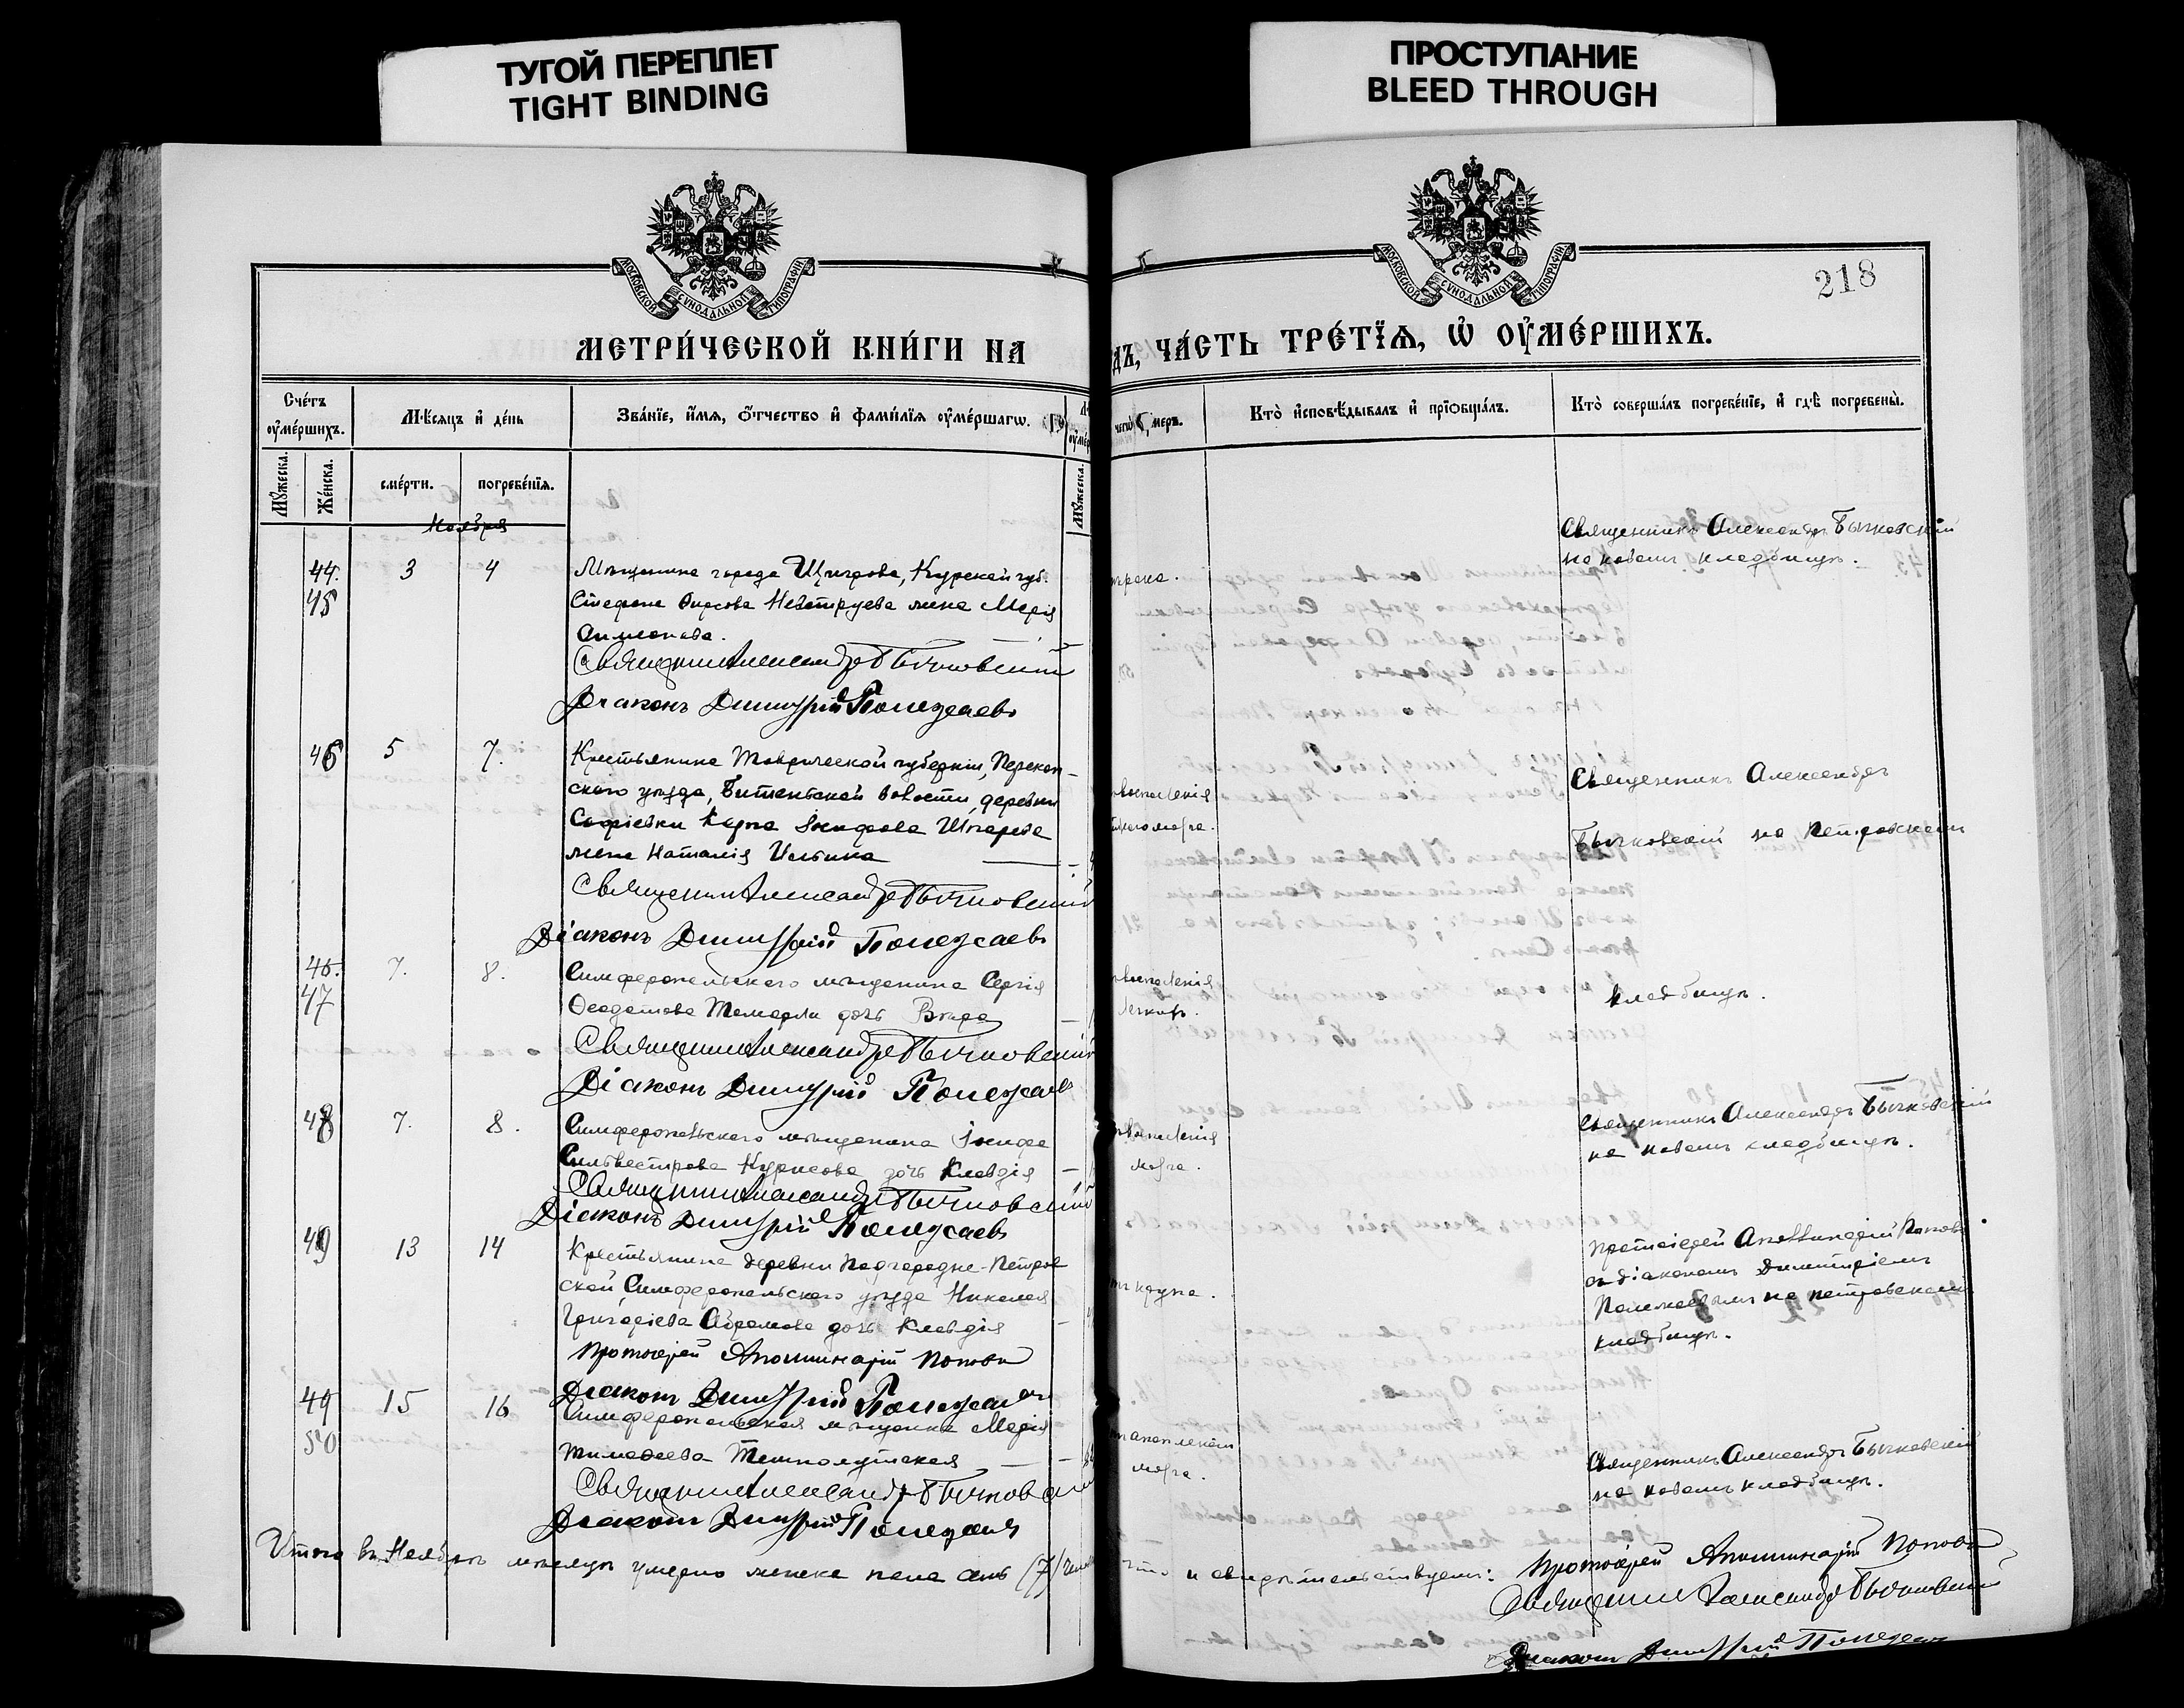 ТУГОЙ ПЕРЕПЛЕТ
TIGHT BINDING
ПРОСТУПАНИЕ
BLEED THROUGH
МОСКОВСКОЙ СѴНОДАЛЬНОЙ ТИПОГРАФІИ
МОСКОВСКОЙ СѴНОДАЛЬНОЙ ТИПОГРАФІИ
218
МЕТРИ́ЧЕСКОЙ КНИ́ГИ НА
ДЪ, ЧА́СТЬ ТРЕ́ТЇѦ, Ѡ҆ ОУ҆МЕ́РШИХЪ.
Сче́тъ оу҆ме́ршихъ.
Мѣ́сяцъ и҆ де́нь
Зва́нїе, и҆́мя, ѻ҆́тчество и҆ фами́лїя оу҆ме́ршагѡ.
Кто̀ и҆сповѣ́дывалъ и҆ прїѡбща́лъ.
Кто̀ соверша́лъ погребе́нїе, и҆ гдѣ̀ погребены̀.
Мꙋ́жеска.
Же́нска.
сме́рти.
погребе́нїя.
Мꙋ́жеска.
Ноября
44. 3 4 Мѣщанина города Щигрова, Курской губ.
45 Стефана Фирсова Невструева жена Марія
Симеонова.
Священникъ Александръ Бычковскій
Діаконъ Димитрій Полежаевъ
Священникъ Александръ Бычковскій
на новомъ кладбищѣ.
46 5 7. Крестьянина Таврической губерніи, Перекоп-
скаго уѣзда, Бютенской волости, деревни
Софіевки Карпа
жена Наталія
Священникъ Александръ Бычковскій
Діаконъ Димитрій Полежаевъ
воспаленія
Священникъ Александръ
Бычковскій на Петровскомъ
кладбищѣ.
46. 7. 8. Симферопольскаго мѣщанина Сергія
47 Феодотова дочь Вѣра
Священникъ Александръ Бычковскій
Діаконъ Димитрій Полежаевъ
воспаленія
легкихъ.
48 7. 8. Симферопольскаго мѣщанина Іосифа
Сильвестрова Курисова дочь Клавдія
Священникъ Александръ Бычковскій
Діаконъ Димитрій Полежаевъ
воспаленія
мозга.
Священникъ Александръ Бычковскій
на новомъ кладбищѣ.
49 13 14 Крестьянина деревни Подгородне-Петров
ской Симферопольскаго уѣзда Николая
Григоріева Абрамова дочь Клавдія
Протоіерей Аполлинарій Поповъ
Діаконъ Димитрій Полежаевъ
крупа.
Протоіерей Аполлинарій Поповъ
съ діакономъ Димитріемъ
Полежаевымъ на петровскомъ
кладбищѣ.
49 15 16 Симферопольская мѣщанка Марія
50 Тимофеева
Священникъ Александръ Бычковскій
Діаконъ Димитрій Полежаевъ
мозга.
Священникъ Александръ Бычковскій
на новомъ кладбищѣ.
Итого въ Ноябрѣ мѣсяцѣ умерло женска пола семь (7)
что и свидѣтельствуемъ: Протоіерей Аполлинарій Поповъ
Священникъ Александръ Бычковскій
Діаконъ Димитрій Полежаевъ